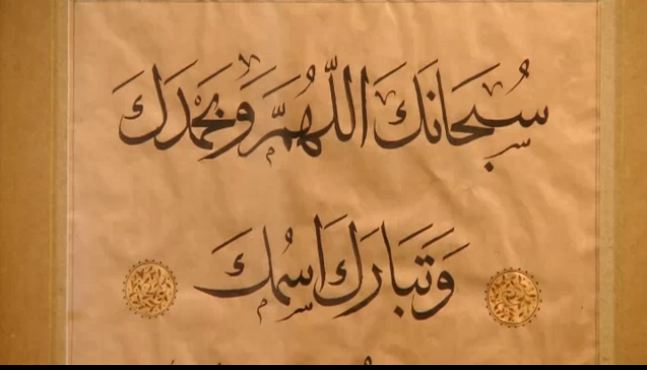 سُبْحَانَكَ اللّٰهُمَّ وَبِحَمْدِكَ
وَتَبَارَكَ اسْمُكَ